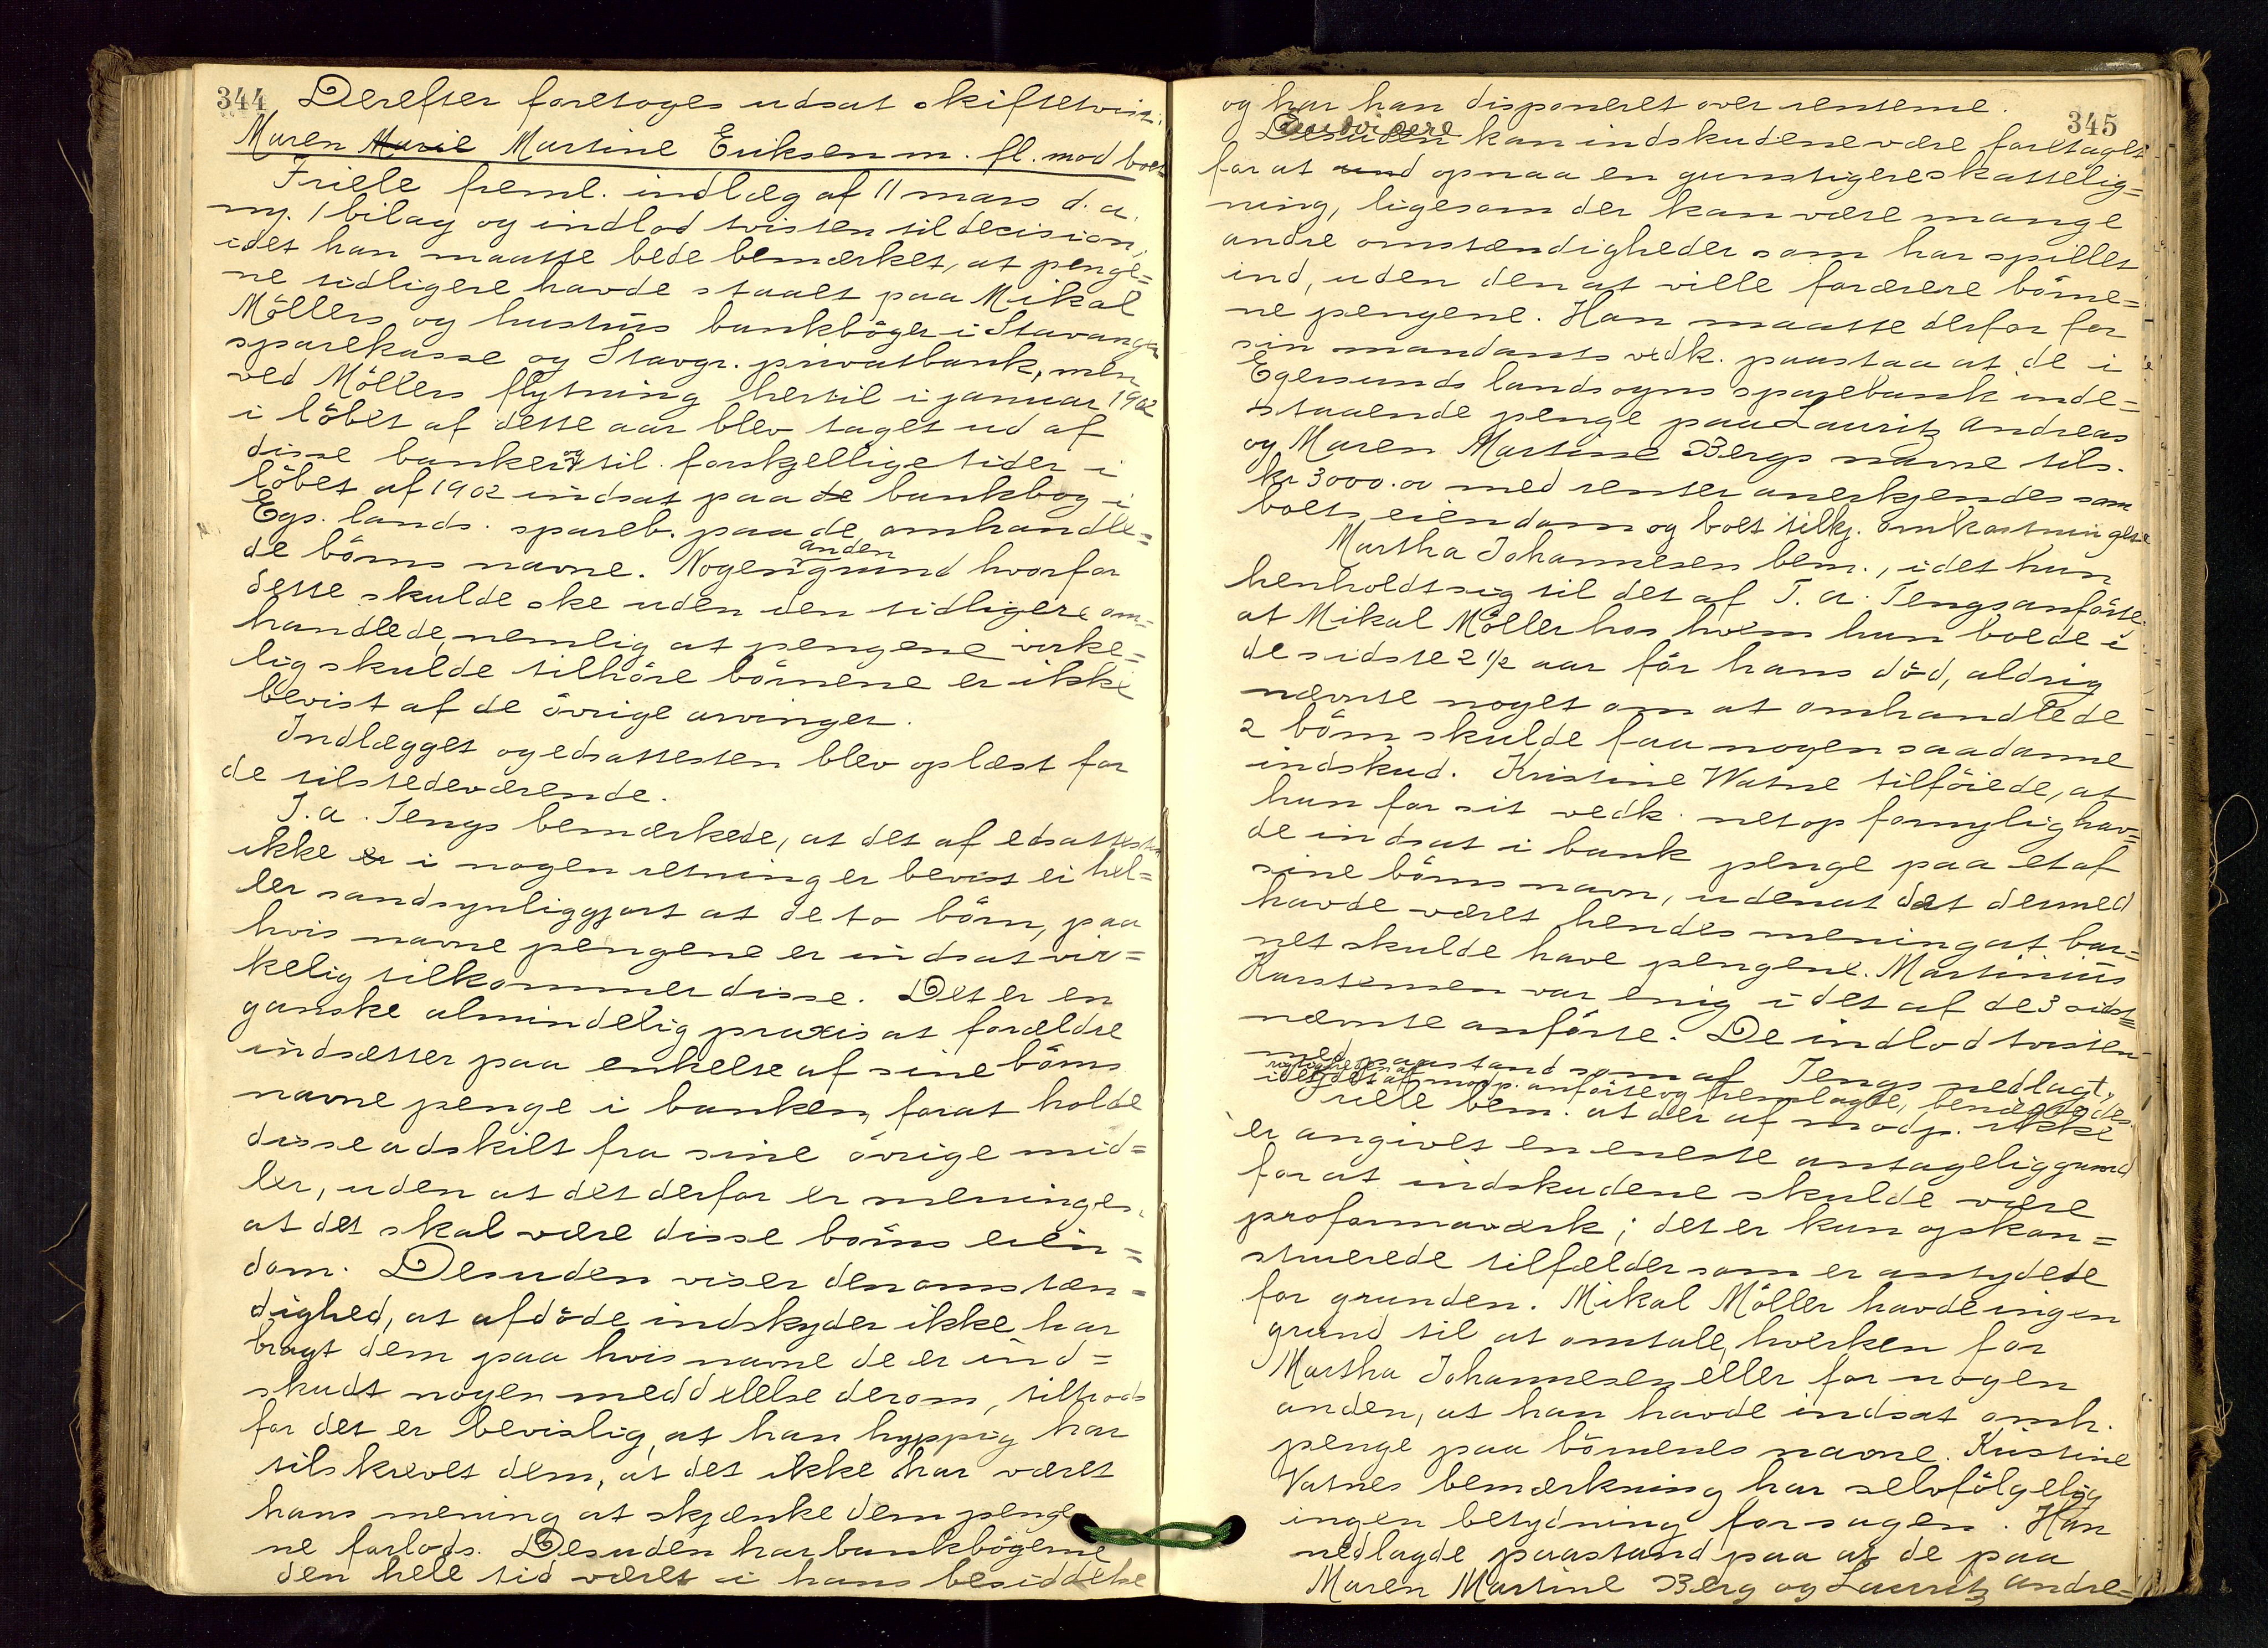 344
Derefter foretoges udsat skiftetvist:
Maren Marie Martine Eriksen m. fl. mod boet
Friele freml. indlæg af 11 mars d. a.
m. 1 bilag og indlod tvisten til decision,
idet han maatte bede bemærket, at penge=
ne tidligere havde staaet paa Mikal
Möllers og hustrus bankböger i Stavanger
sparekasse og Stavgr. privatbank, men
ved Möllers flytning hertil i januar 1902
i löbet af dette aar blev taget ud af
disse banker og til forskjellige tider i
löbet af 1902 indsat paa de bankbog i
Egs. lands. spareb. paa de omhandle=
de börns navne. Nogen anden grund hvorfor
dette skulde ske uden den tidligere om=
handlede, nemlig at pengene virke=
lig skulde tilhöre börnene er ikke
bevist af de övrige arvinger.
Indlægget og edsattesten blev oplæst for
de tilstedeværende.
T. A. Tengs bemærkede, at det af edsattesten
ikke er i nogen retning er bevist ei hel=
ler sandsynliggjort at de to börn, paa
hvis navne pengene er indsat vir=
kelig tilkommer disse. Det er en
ganske almindelig praxis at forældre
indsætter paa enkelte af sine börns
navne penge i banken, forat holde
disse adskilt fra sine övrige mid=
ler, uden at det derfor er meningen,
at det skal være disse börns eien=
dom. Desuden viser den omstæn=
dighed, at afdöde indskyder ikke har
bragt dem paa hvis navne de er ind=
skudt nogen meddelelse derom, tiltrods
for det er bevislig, at han hyppig har
tilskrevet dem, at det ikke har været
hans mening at skjænke dem penge
ne forlods. Desuden har bankbögerne
den hele tid været i hans besiddelse
345
og har han disponeret over renterne.
Endvidere kan indskudene være foretaget
for at und opnaa en gunstigere skattelig=
ning, ligesom der kan være mange
andre omstændigheder som har spillet
ind, uden den at ville forærere börne=
ne pengene. Han maatte derfor for
sin mandants vedk. paastaa at de i
Egersunds landsogns sparebank inde=
staaende penge paa Lauritz Andreas
og Maren Martine Bergs navne tils.
kr 3000.00 med renter anerkjendes som
boets eiendom og boet tilkj. omkostninger.
Martha Johannesen bem., idet hun
henholdt sig til det af T. A. Tengs anförte
at Mikal Möller hos hvem hun boede i
de sidste 2 1/2 aar för hans död, aldrig
nævnte noget om at omhandlede
2 börn skulde faa nogen saadanne
indskud. Kristine Watne tilföiede, at
hun for sit vedk. netop fornylig hav=
de indsat i bank penge paa et af
sine börns navn, uden at det dermed
havde været hendes mening at bar=
net skulde have pengene. Martinius
Karstensen var enig i det af de 3 sidst=
nævnte anförte. De indlod tvisten
med paastand som af Tengs nedlagt,
idet det af modp. anförte og fremlagte, benægtedes.
Friele bem. at der af modp. ikke
er angivet en eneste antagelig grund
for at indskudene skulde være
proformaværk; det er kun opkon=
struerede tilfælder som er antydede
for grunden. Mikal Möller havde ingen
grund til at omtale, hverken for
Martha Johannesen eller for nogen
anden, at han havde indsat omh.
penge paa börnenes navne. Kristine
Vatnes bemærkning har selvfölgelig
ingen betydning for sagen. Han
nedlagde paastand paa at de paa
Maren Martine Berg og Lauritz Andre=